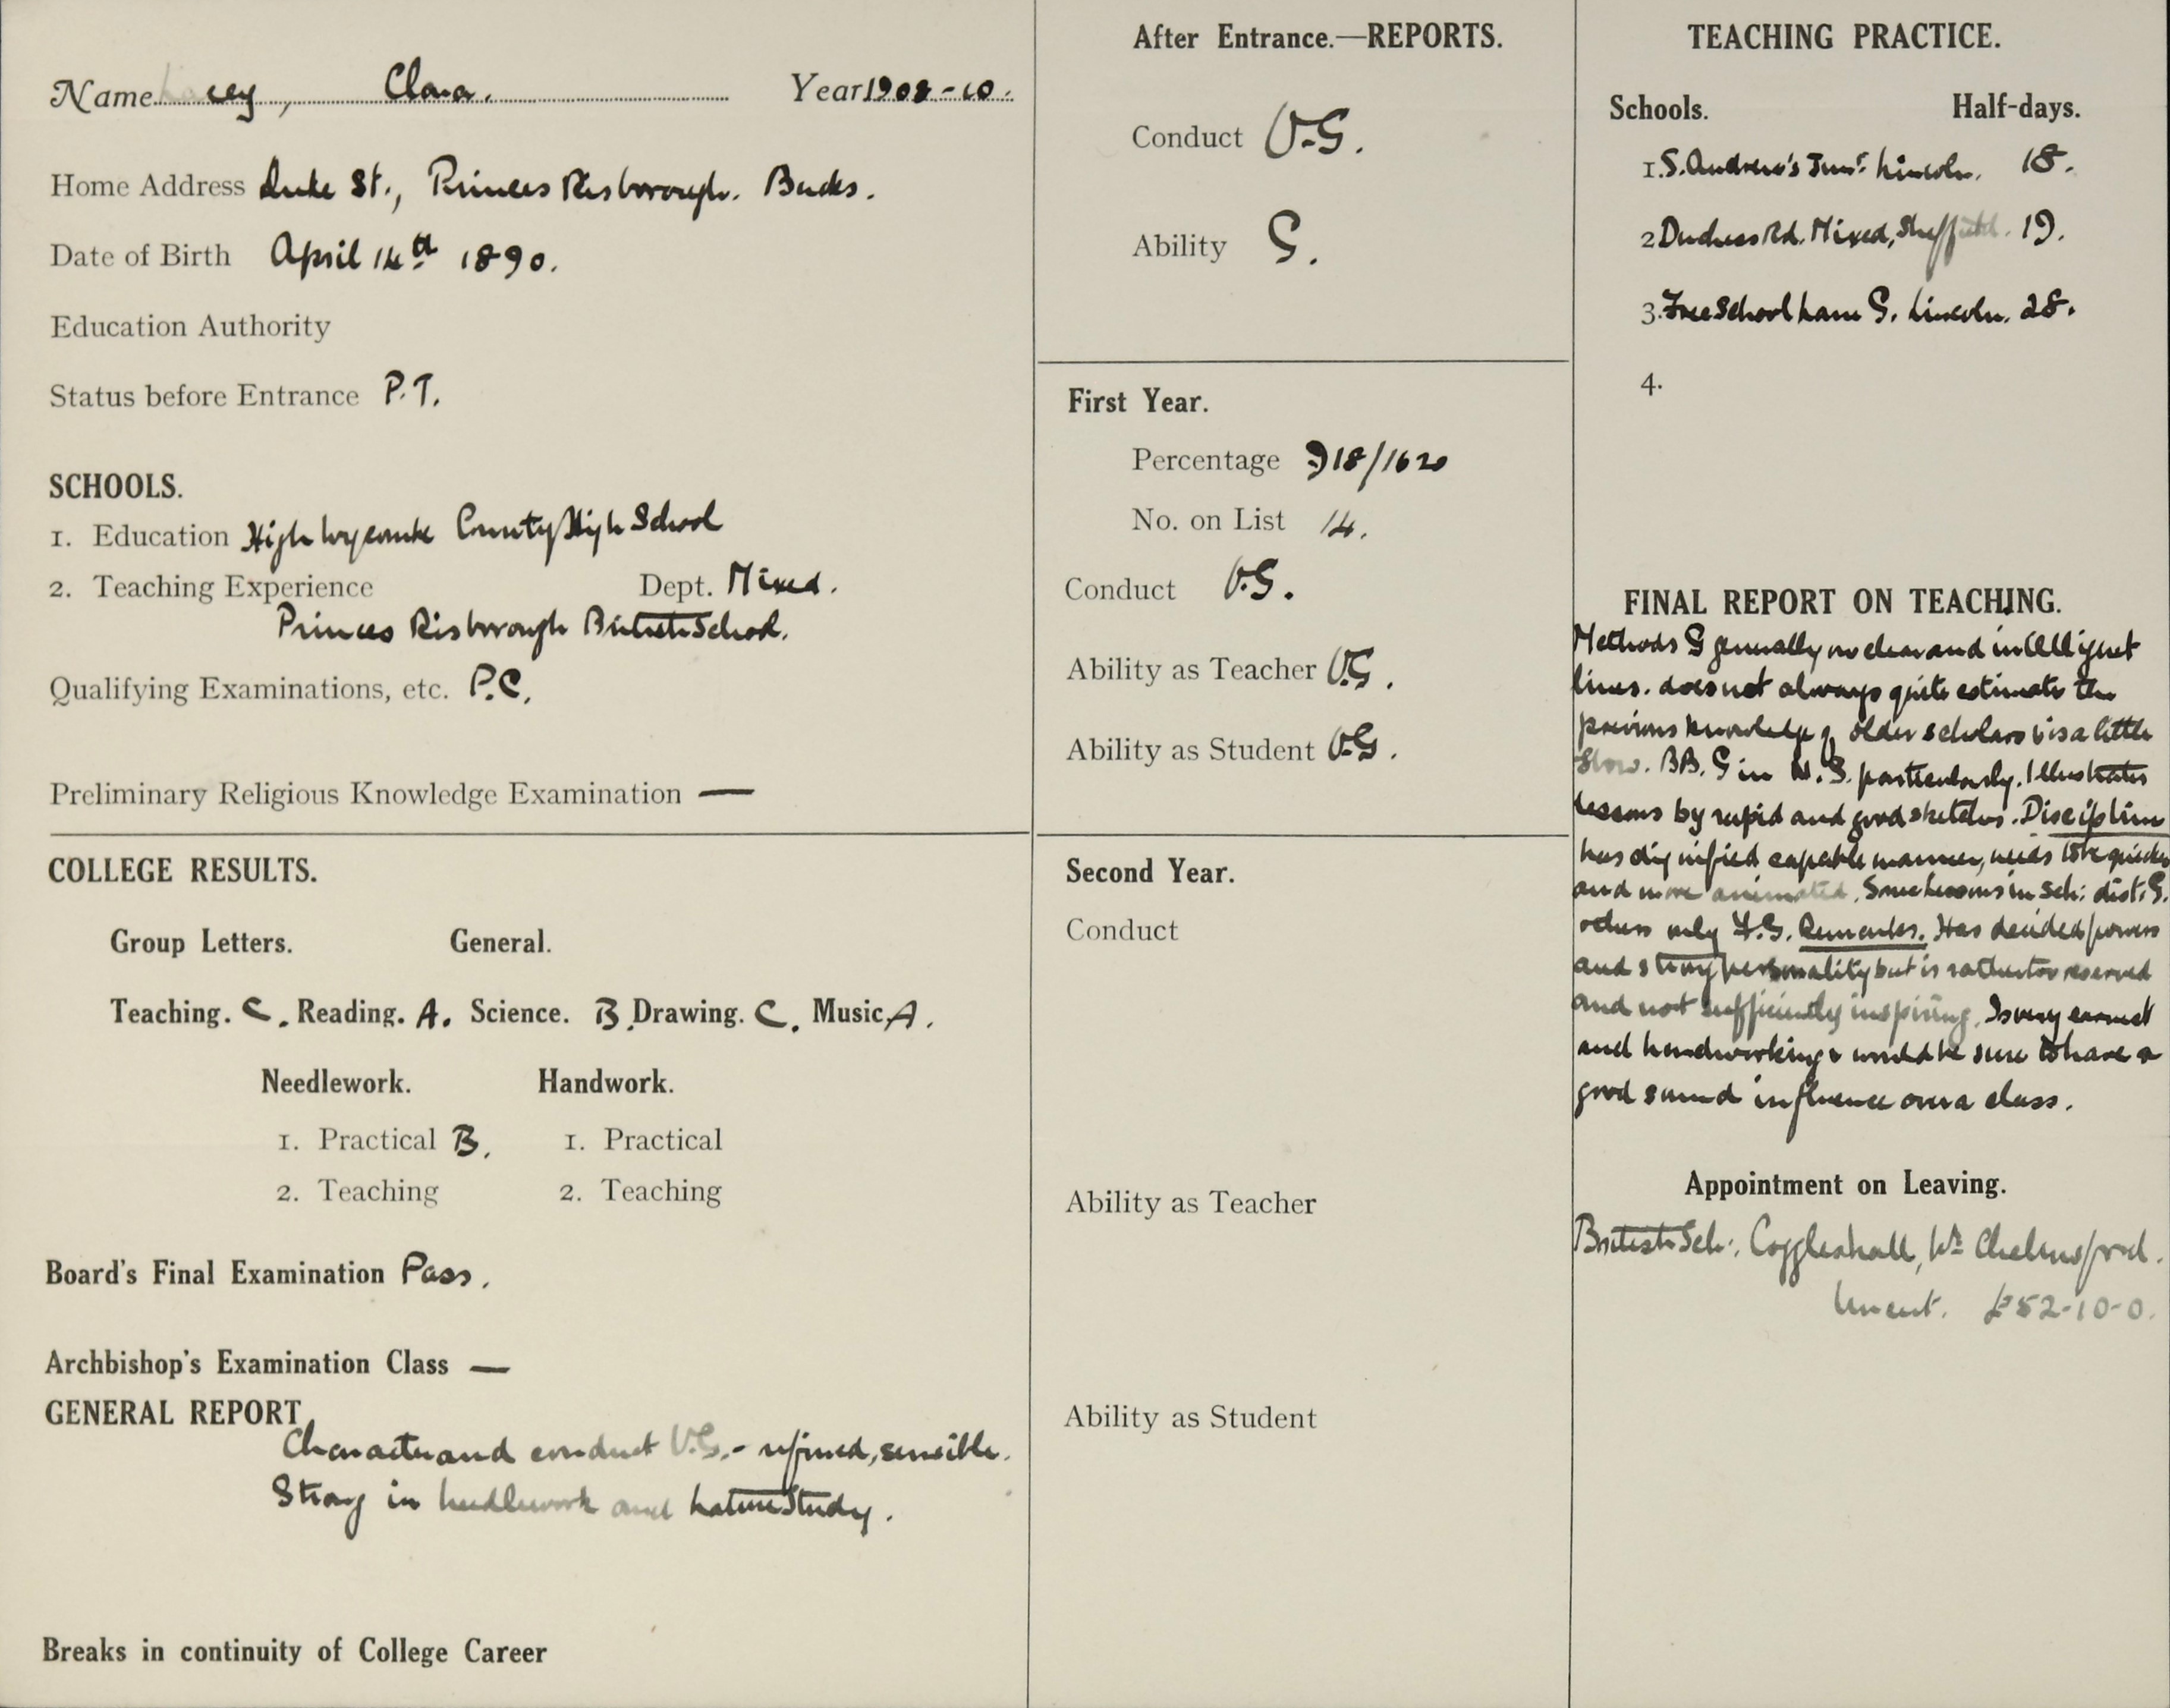 Name Lacey, Clara. Year 1908-10.
Home Address Duke St., Princes Risborough. Bucks.
Date of Birth April 14th 1890.
Education Authority
Status before Entrance P.T.
SCHOOLS.
1. Education High Wycombe County High School
2. Teaching Experience Dept. Mixed.
Princes Risborough British School.
Qualifying Examinations, etc. P.C.
Preliminary Religious Knowledge Examination —
COLLEGE RESULTS.
Group Letters. General.
Teaching. C. Reading. A. Science. B. Drawing. C. Music A.
Needlework. Handwork.
1. Practical B. 1. Practical
2. Teaching 2. Teaching
Board's Final Examination Pass.
Archbishop's Examination Class —
GENERAL REPORT
Character and conduct V.G. - refined, sensible.
Strong in needlework and Nature Study.
Breaks in continuity of College Career
After Entrance.—REPORTS.
Conduct V.G.
Ability G.
First Year.
Percentage 918/1620
No. on List 14.
Conduct V.G.
Ability as Teacher V.G.
Ability as Student V.G.
Second Year.
Conduct
Ability as Teacher
Ability as Student
TEACHING PRACTICE.
Schools. Half-days.
1. S. Andrew's Junr. Lincoln. 18.
2 Duchess Rd. Mixed, Sheffield. 19.
3. Free School Lane G. Lincoln. 28.
4.
FINAL REPORT ON TEACHING.
Methods G generally on clear and intelligent
lines. does not always quite estimate the
previous knowledge of older scholars & is a little
slow. BB. G in N.S. particularly. Illustrates
lessons by rapid and good sketches. Discipline
has dignified capable manner, needs to be quicker
and more animated. Some lessons in Sch: dist. G.
others only F.G. Remarks. Has decided powers
and strong personality but is rather too reserved
and not sufficiently inspiring. Is very earnest
and hardworking & would be sure to have a
good sound influence over a class.
Appointment on Leaving.
British Sch:, Coggleshall, Nr. Chelmsford.
Uncert. £82-10-0.